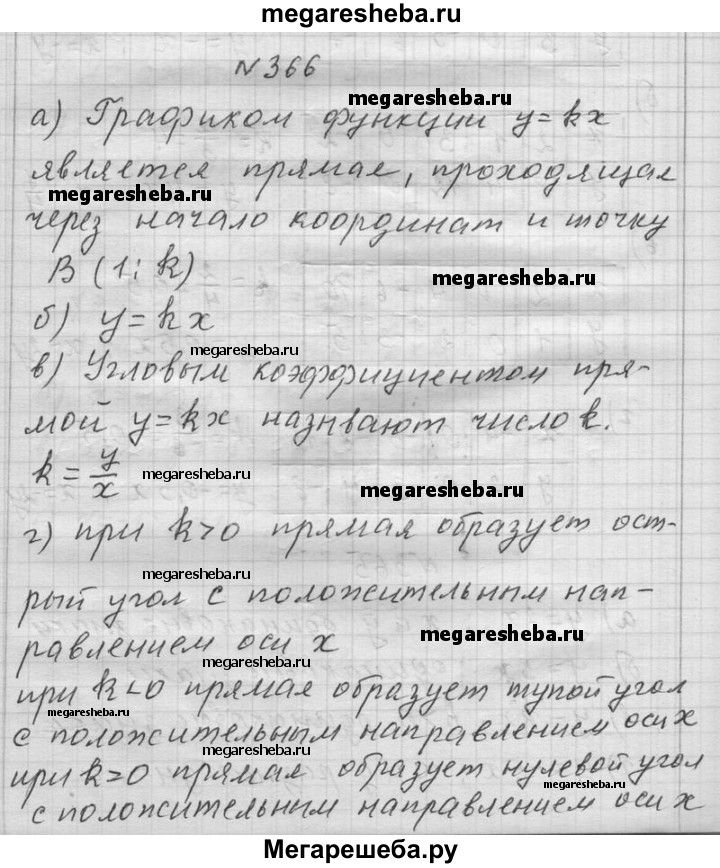 megaresheba.ru
N 366
megaresheba.ru
а) Графиком функции y=kx
является прямая, проходящая
megaresheba.ru
через начало координат и точку
B (1; k)
megaresheba.ru
б) y=kx
megaresheba.ru
в) Угловым коэффициентом пря-
мой y=kx называют число k.
k = y/x
megaresheba.ru
megaresheba.ru
г) при k>0 прямая образует ост-
megaresheba.ru
рый угол с положительным нап-
равлением оси x
megaresheba.ru
megaresheba.ru
при k<0 прямая образует тупой угол
megaresheba.ru
с положительным направлением оси x
megaresheba.ru
при k=0 прямая образует нулевой угол
megaresheba.ru
с положительным направлением оси x
Мегарешеба.ру